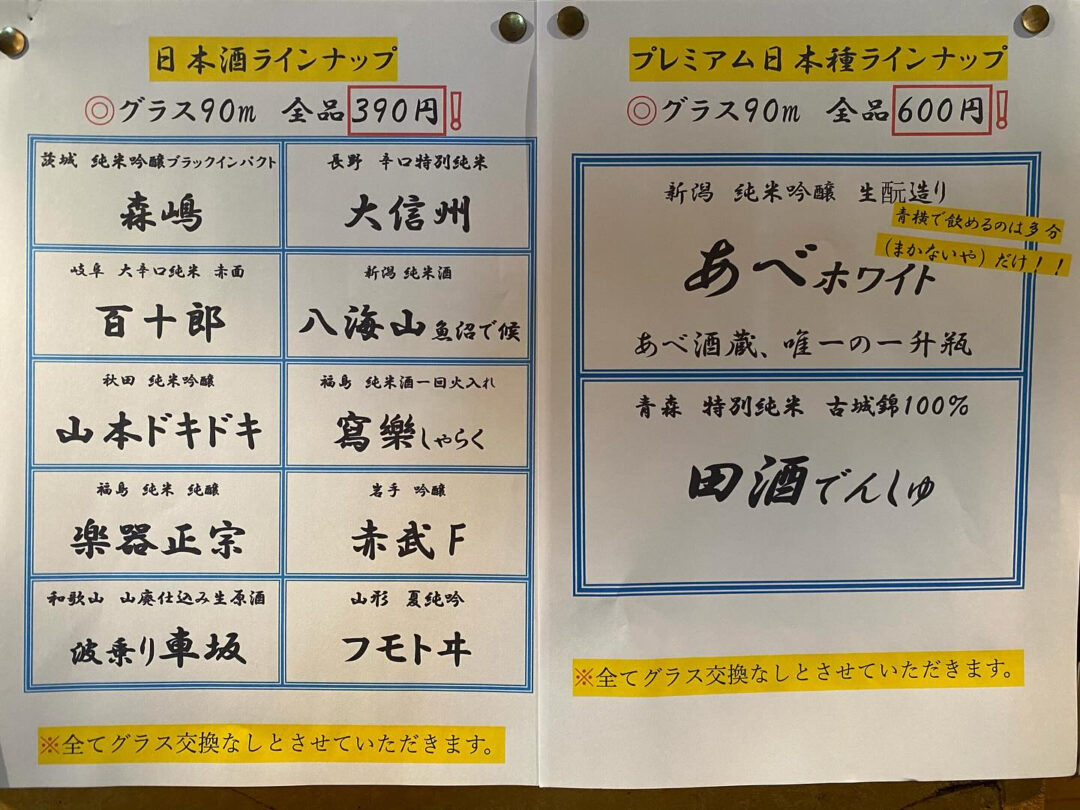 日本酒ラインナップ
◎グラス90ml 全品390円!
茨城 純米吟醸ブラックインパクト
森嶋
長野 辛口特別純米
大信州
岐阜 大辛口純米 赤面
百十郎
新潟 純米酒
八海山魚沼で候
秋田 純米吟醸
山本ドキドキ
福島 純米酒一回火入れ
寫樂しゃらく
福島 純米 純醸
楽器正宗
岩手 吟醸
赤武F
和歌山 山廃仕込み生原酒
波乗り車坂
山形 夏純吟
フモトヰ
※全てグラス交換なしとさせていただきます。
プレミアム日本種ラインナップ
◎グラス90ml 全品600円!
新潟 純米吟醸 生酛造り
青横で飲めるのは多分
(まかないや)だけ!!
あべホワイト
あべ酒蔵、唯一の一升瓶
青森 特別純米 古城錦100%
田酒でんしゅ
※全てグラス交換なしとさせていただきます。